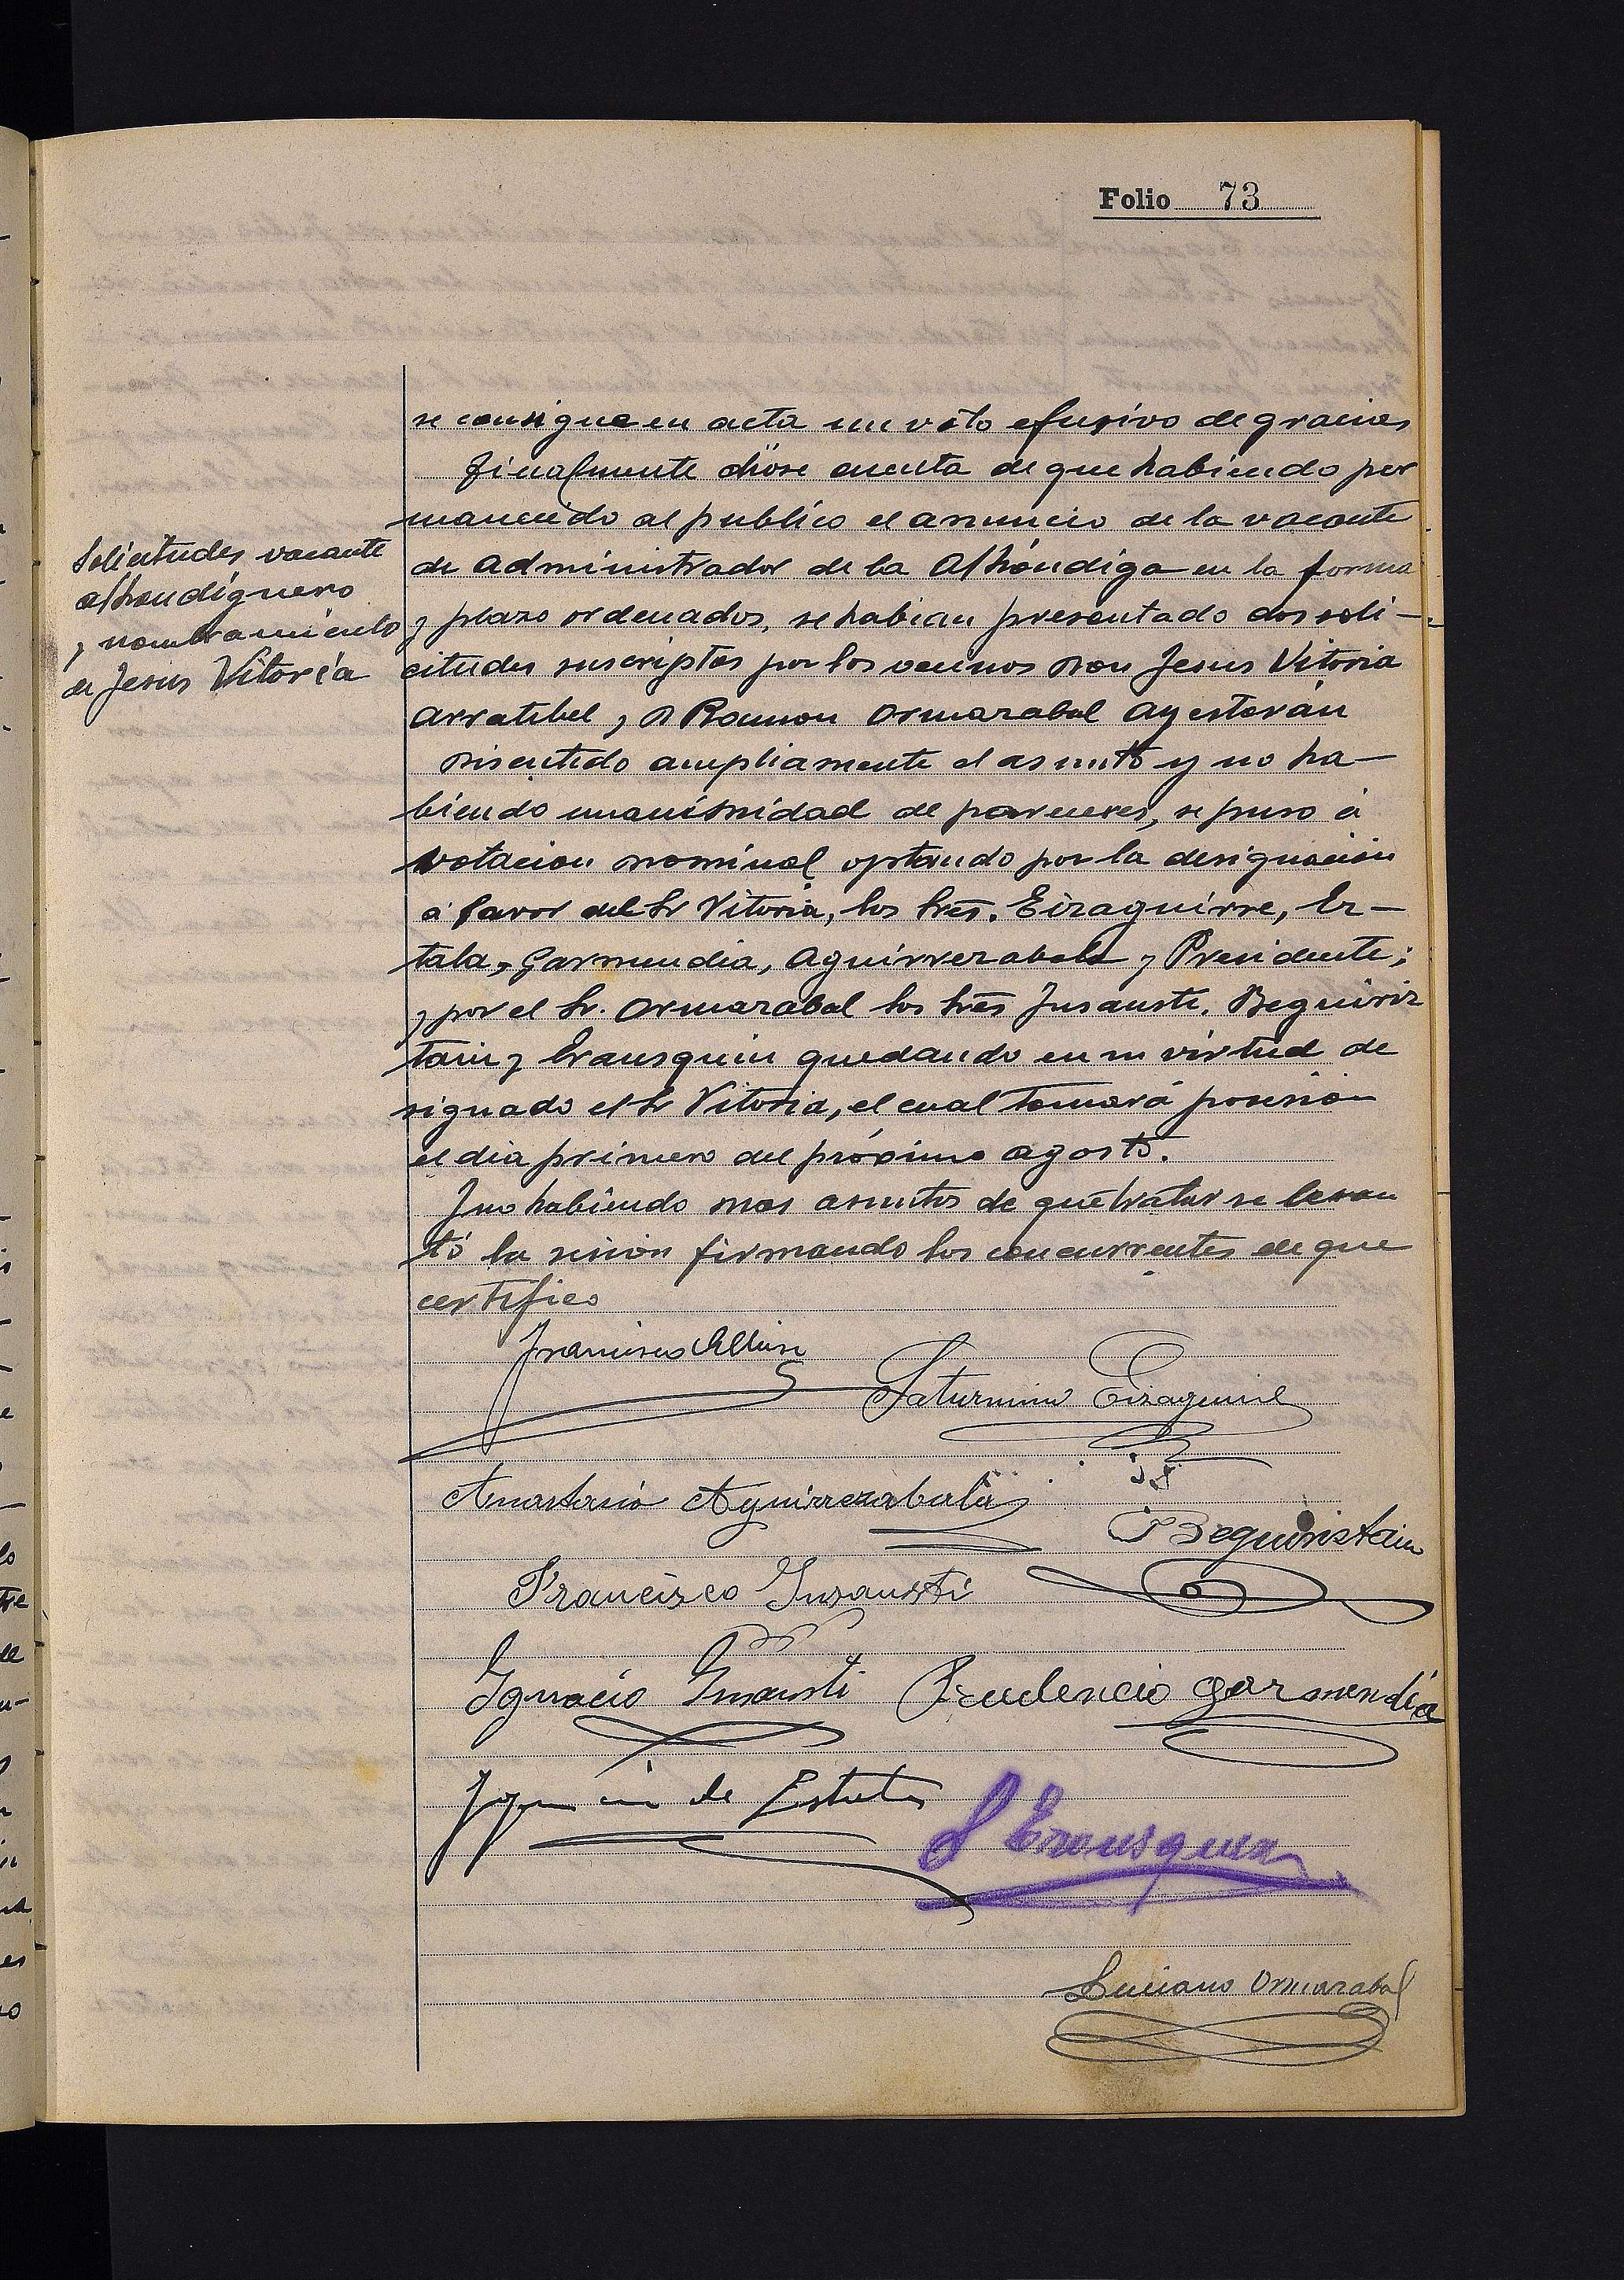 Folio 73
se consigne en acta un voto efusivo de gracias
Finalmente dióse cuenta de que habiendo per
manecido al publico el anuncio de la vacante
de Administrador de la Alhóndiga en la forma
y plazo ordenados, se habian presentado dos soli-
citudes suscriptas por los vecinos Don Jesus Vitoria
Arratibel y D Ramon Ormazabal Ayestarán
Discutido ampliamente el asunto y no ha-
biendo unanimidad de pareceres, se puso á
votacion nominal optando por la designación
á favor del Sr Vitoria, los Sres. Eizaguirre, Er-
tala, Garmendia, Aguirrezabala y Presidente;
y por el Sr. Ormazabal los Sres Insausti, Beguiriz
tain y Erausquin quedando en su virtud de
signado el Sr Vitoria, el cual tomará posesión
el dia primero del próximo agosto.
Y no habiendo mas asuntos de que tratar se levan
tó la sesión firmando los concurrentes de que
certifico
Solicitudes vacante
alhondiguero
y nombramiento
de Jesus Vitoria
Francisco
Saturnino Eizaguirre
Anastasio Aguirrezabala
Beguiristain
Francisco Insausti
Ignacio Insausti Prudencio Garmendia
de
Erausquin
Luciano Ormazabal